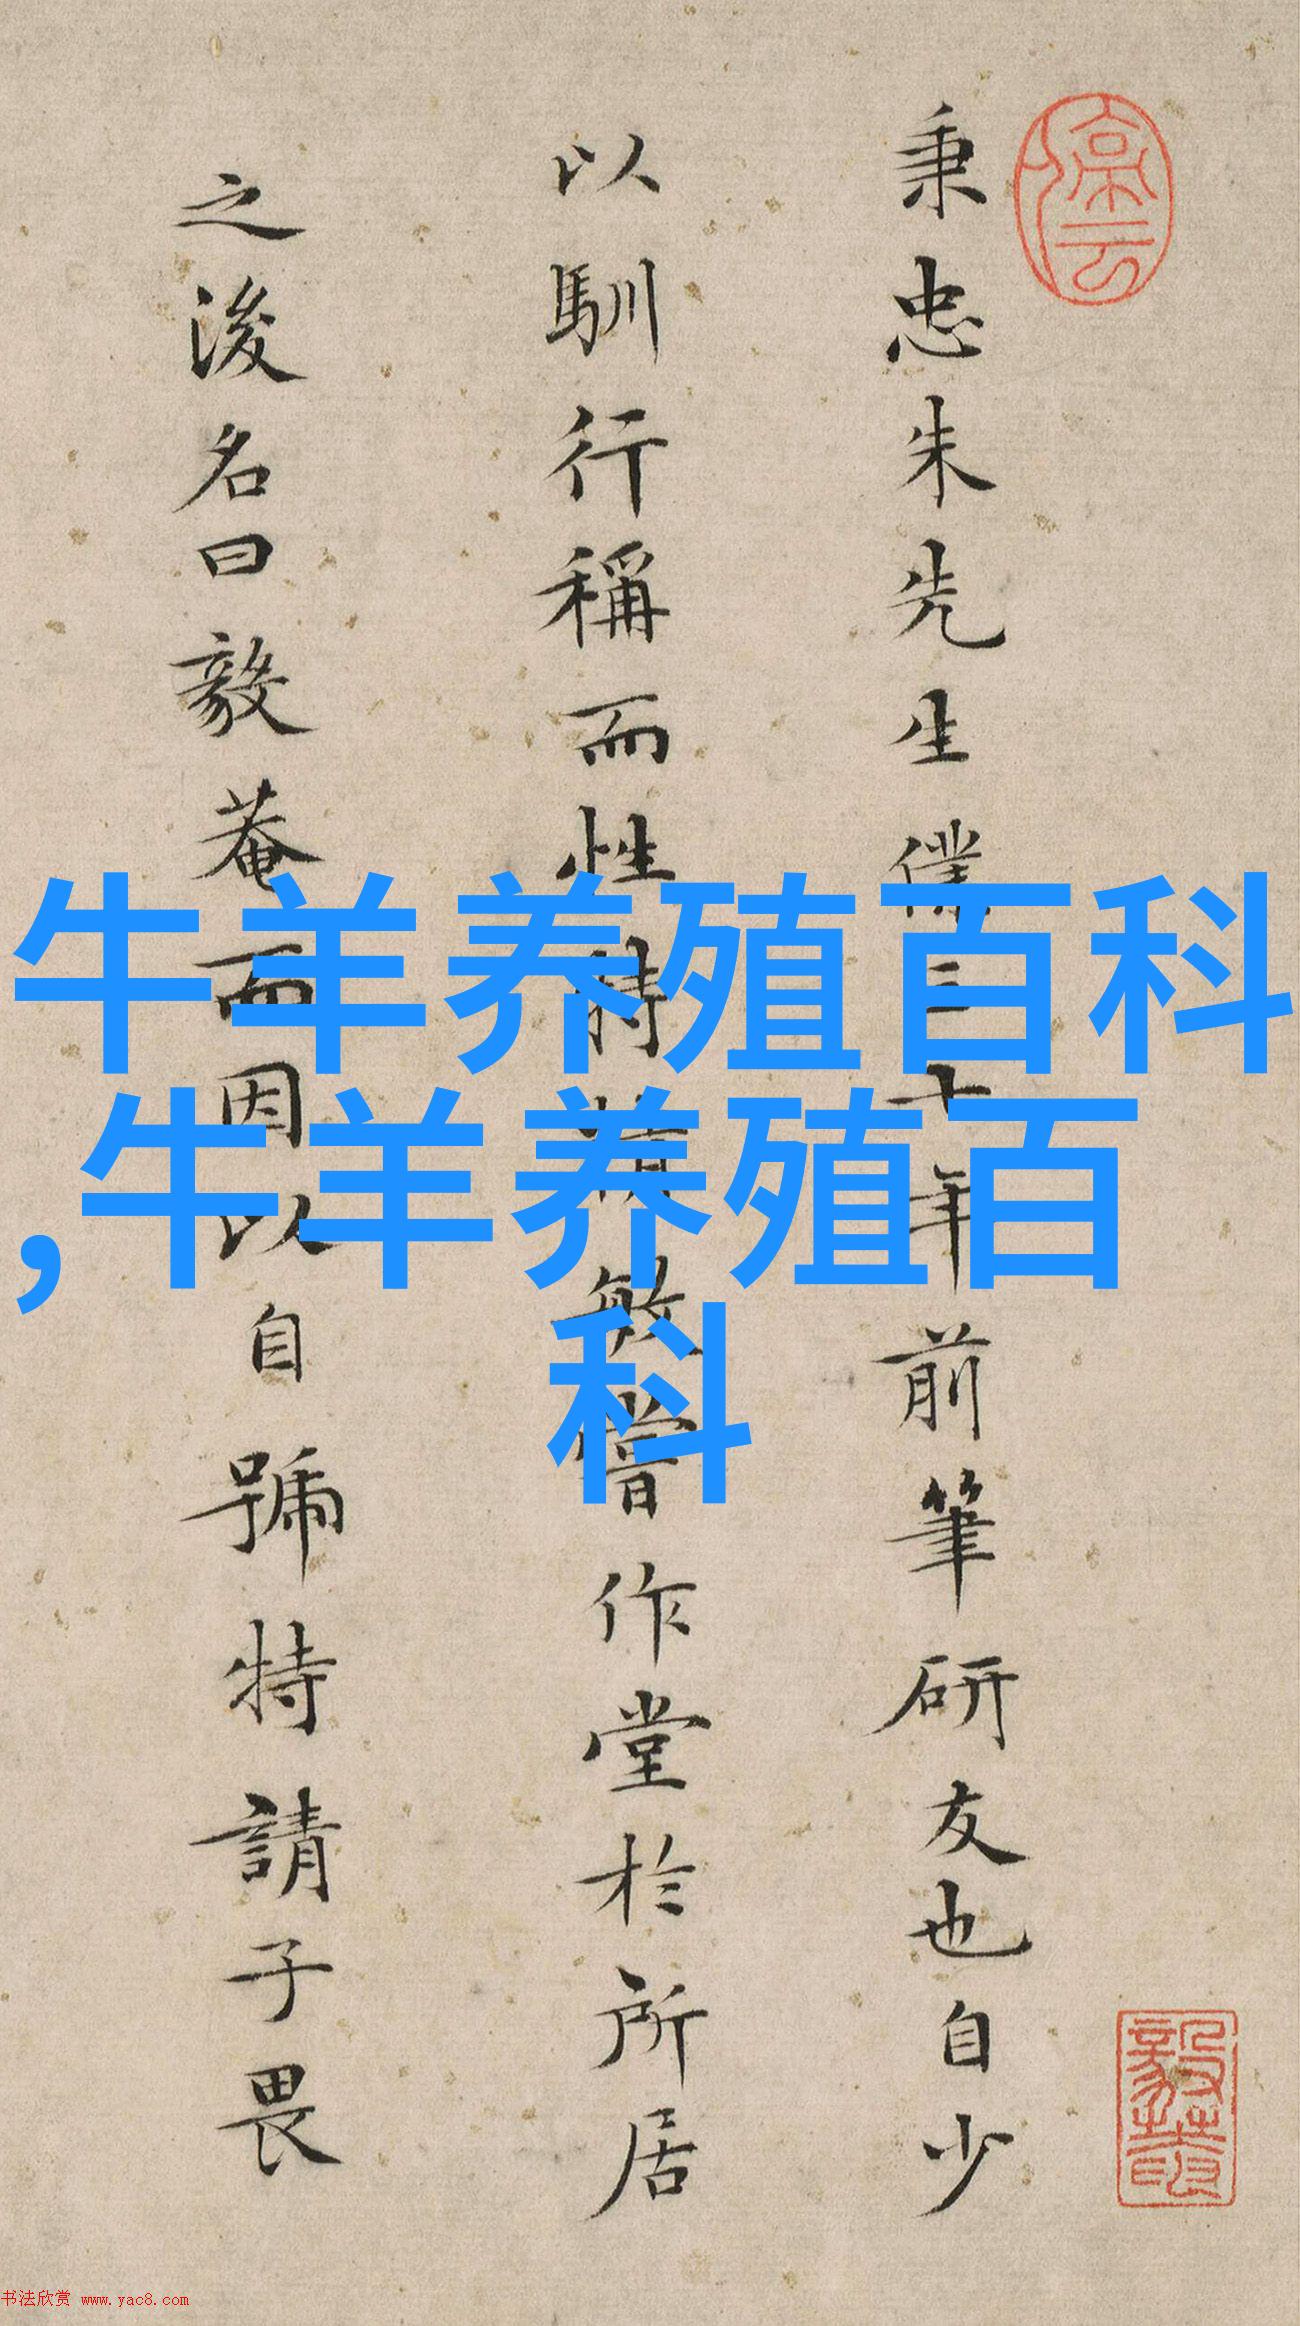 秉忠朱先生僕三十年前筆研友也自少
以馴行稱而性特精敏嘗作堂於所居
之後名曰毅菴而因以自號特請子畏
牛羊养殖百科
,牛羊养殖百
科
书法欣赏 www.yac8.com